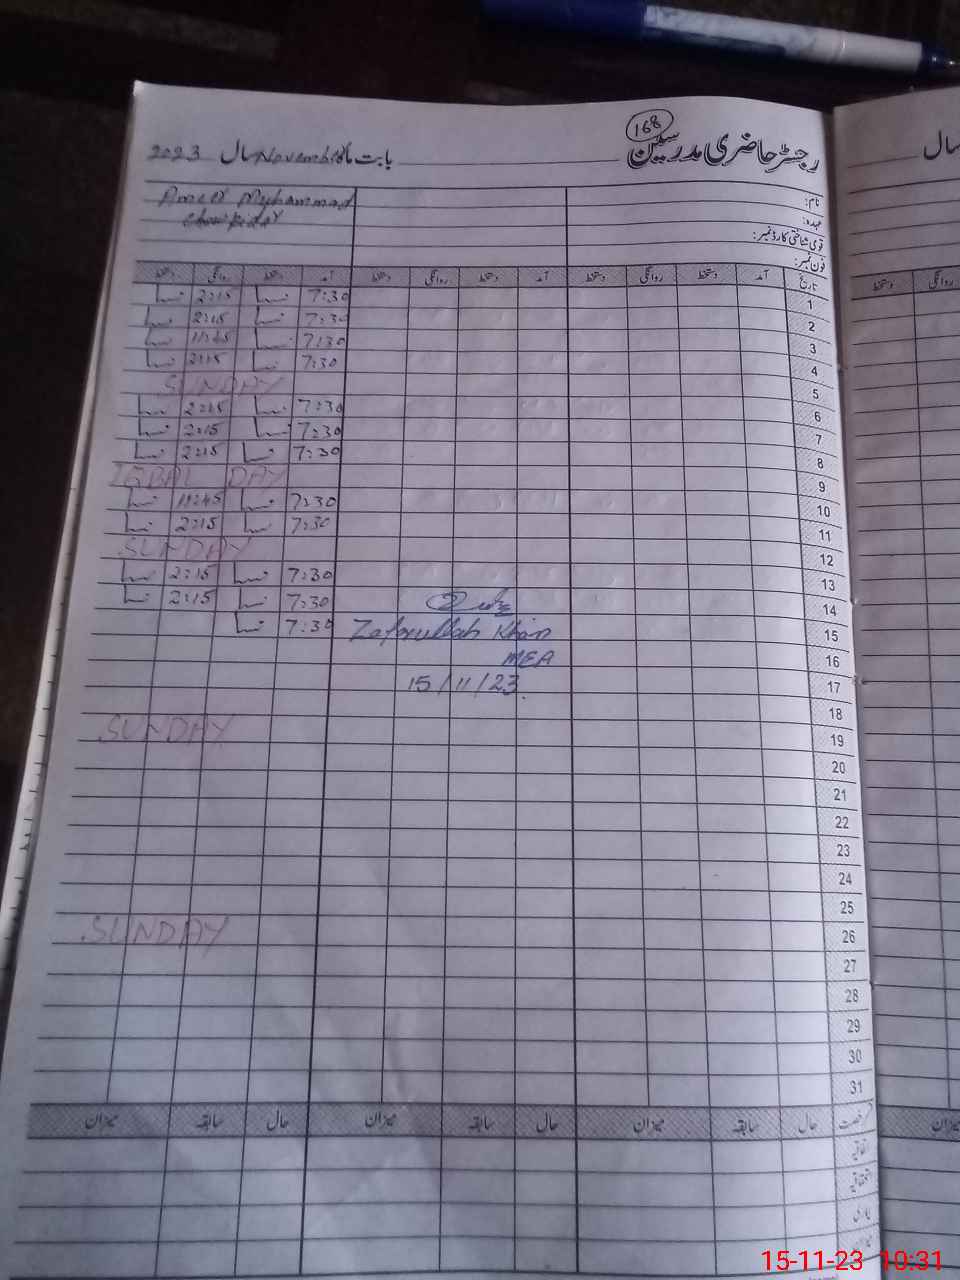 168
رجسٹر حاضری مدرسین بابت ماہ November سال 2023
سال
نام: Muhammad
عہدہ: Chowkidar
قومی شناختی کارڈ نمبر:
فون نمبر:
تاریخ آمد دستخط روانگی دستخط آمد دستخط روانگی دستخط آمد دستخط روانگی دستخط
روانگی دستخط
1 7:30 2:15
2 7:30 2:15
3 7:30 11:45
4 7:30 2:15
5 SUNDAY
6 7:30 2:15
7 7:30 2:15
8 7:30 2:15
9 IQBAL DAY
10 7:30 11:45
11 7:30 2:15
12 SUNDAY
13 7:30 2:15
14 7:30 2:15
15 Zafarullah Khan 7:30
16 MEA
17 15/11/23
18
19 SUNDAY
20
21
22
23
24
25
26 SUNDAY
27
28
29
30
31
رخصت حال سابقہ میزان حال سابقہ میزان حال سابقہ میزان
میزان
اتفاقیہ
استحقاقیہ
بیماری
میزان
15-11-23 10:31